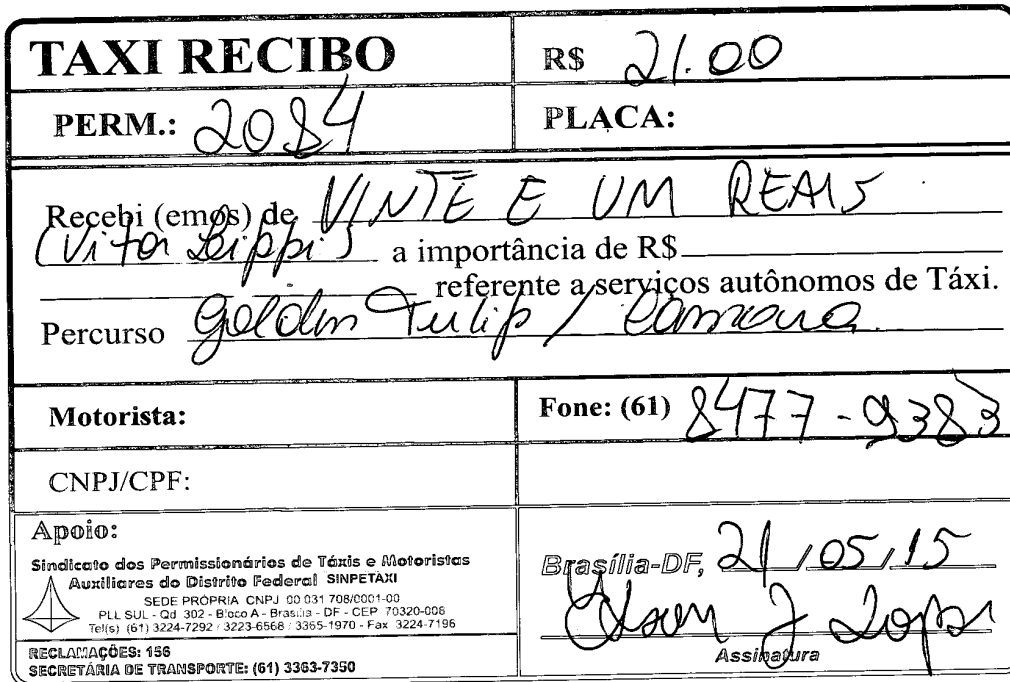 TAXI RECIBO
R$ 21.00
PERM.: 2084
PLACA:
Recebi (emos) de VINTE E UM REAIS
(Vitor Lippi) a importância de R$
referente a serviços autônomos de Táxi.
Percurso Golden Tulip / Camara
Motorista:
Fone: (61) 8477-9383
CNPJ/CPF:
Apoio:
Sindicato dos Permissionários de Táxis e Motoristas
Auxiliares do Distrito Federal SINPETAXI
SEDE PRÓPRIA CNPJ 00 031 708/0001-00
PLL SUL - Qd 302 - Bloco A - Brasília - DF - CEP 70320-006
Tel(s) (61) 3224-7292 / 3223-6568 / 3365-1970 - Fax 3224-7196
RECLAMAÇÕES: 156
SECRETÁRIA DE TRANSPORTE: (61) 3363-7350
Brasília-DF, 21/05/15
J Lopes
Assinatura